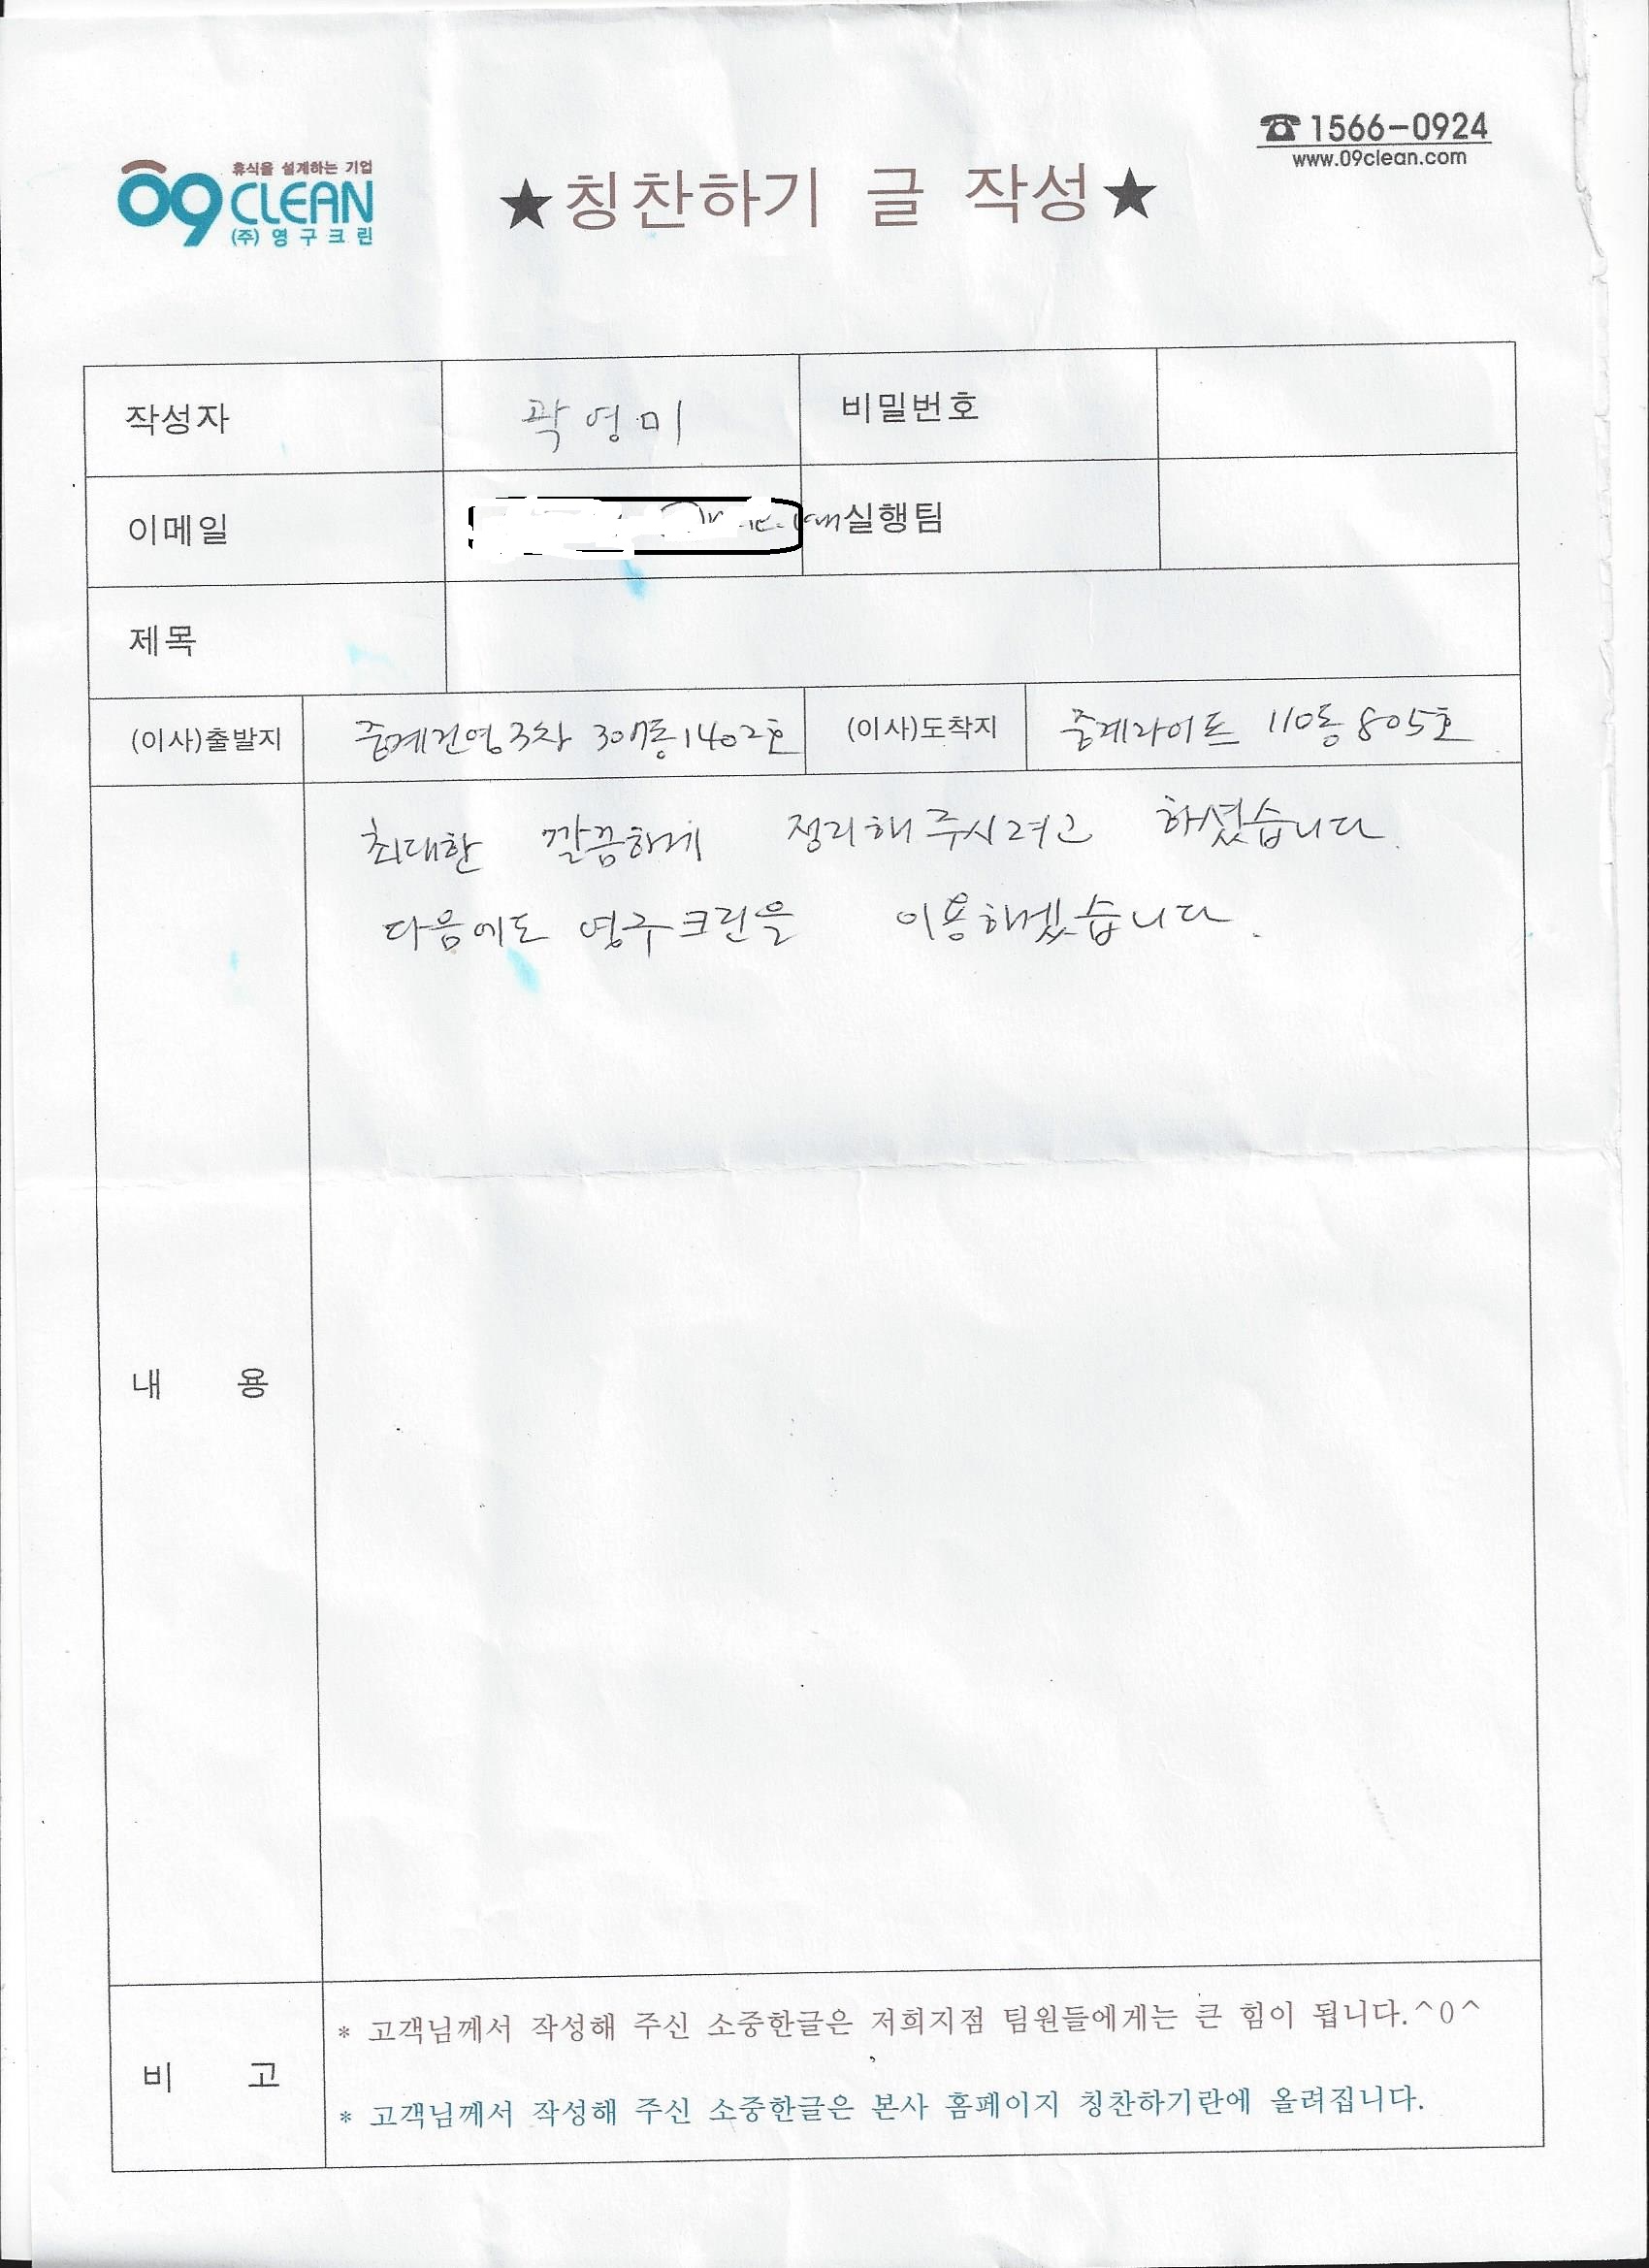 휴식을 설계하는 기업
09 CLEAN
(주)영구크린
★칭찬하기 글 작성★
☎1566-0924
www.09clean.com
작성자 곽영미 비밀번호
이메일 실행팀
제목
(이사)출발지 중계건영3차 307동1402호 (이사)도착지 중계라이프 110동 805호
최대한 깔끔하게 정리해주시려고 하셨습니다.
다음에도 영구크린을 이용하겠습니다.
내 용
비 고
* 고객님께서 작성해 주신 소중한글은 저희지점 팀원들에게는 큰 힘이 됩니다.^0^
* 고객님께서 작성해 주신 소중한글은 본사 홈페이지 칭찬하기란에 올려집니다.